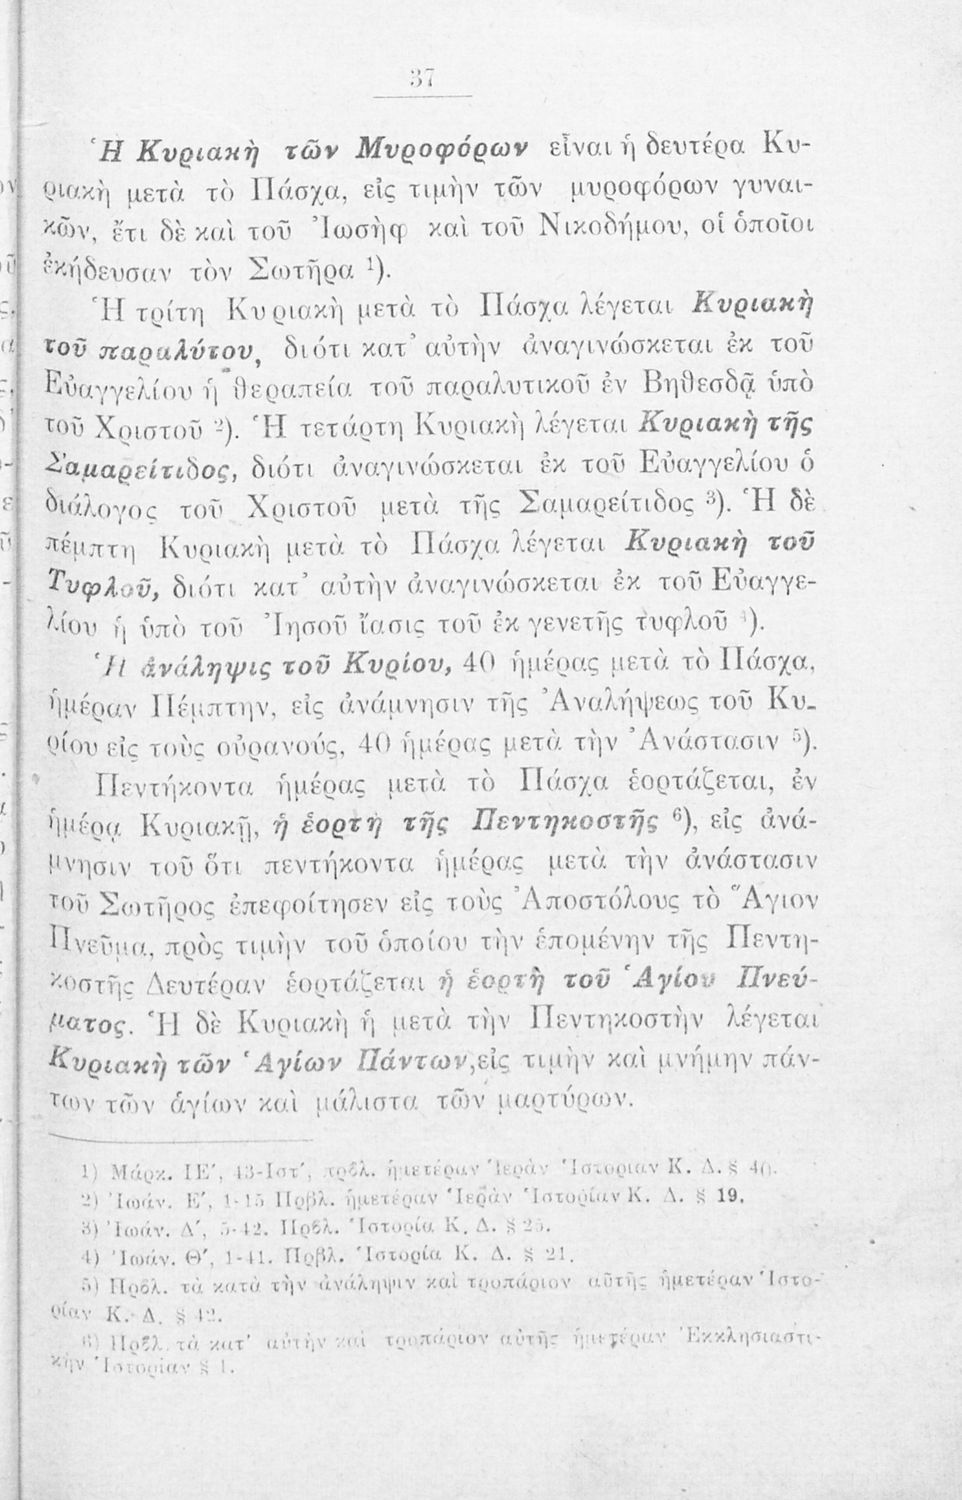 37
Ἡ Κυριακὴ τῶν Μυροφόρων εἶναι ἡ δευτέρα Κυ-
ριακὴ μετὰ τὸ Πάσχα, εἰς τιμὴν τῶν μυροφόρων γυναι-
κῶν, ἔτι δὲ καὶ τοῦ Ἰωσὴφ καὶ τοῦ Νικοδήμου, οἱ ὁποῖοι
ἐκήδευσαν τὸν Σωτῆρα ¹).
Ἡ τρίτη Κυριακὴ μετὰ τὸ Πάσχα λέγεται Κυριακὴ
τοῦ παραλύτου, διότι κατ᾽ αὐτὴν ἀναγινώσκεται ἐκ τοῦ
Εὐαγγελίου ἡ θεραπεία τοῦ παραλυτικοῦ ἐν Βηθεσδᾷ ὑπὸ
τοῦ Χριστοῦ ²). Ἡ τετάρτη Κυριακὴ λέγεται Κυριακὴ τῆς
Σαμαρείτιδος, διότι ἀναγινώσκεται ἐκ τοῦ Εὐαγγελίου ὁ
διάλογος τοῦ Χριστοῦ μετὰ τῆς Σαμαρείτιδος ³). Ἡ δὲ
πέμπτη Κυριακὴ μετὰ τὸ Πάσχα λέγεται Κυριακὴ τοῦ
Τυφλοῦ, διότι κατ᾽ αὐτὴν ἀναγινώσκεται ἐκ τοῦ Εὐαγγε-
λίου ἡ ὑπὸ τοῦ Ἰησοῦ ἴασις τοῦ ἐκ γενετῆς τυφλοῦ ⁴).
Ἡ ἀνάληψις τοῦ Κυρίου, 40 ἡμέρας μετὰ τὸ Πάσχα,
ἡμέραν Πέμπτην, εἰς ἀνάμνησιν τῆς Ἀναλήψεως τοῦ Κυ-
ρίου εἰς τοὺς οὐρανούς, 40 ἡμέρας μετὰ τὴν Ἀνάστασιν ⁵).
Πεντήκοντα ἡμέρας μετὰ τὸ Πάσχα ἑορτάζεται, ἐν
ἡμέρᾳ Κυριακῇ, ἡ ἑορτὴ τῆς Πεντηκοστῆς ⁶), εἰς ἀνά-
μνησιν τοῦ ὅτι πεντήκοντα ἡμέρας μετὰ τὴν ἀνάστασιν
τοῦ Σωτῆρος ἐπεφοίτησεν εἰς τοὺς Ἀποστόλους τὸ Ἅγιον
Πνεῦμα, πρὸς τιμὴν τοῦ ὁποίου τὴν ἑπομένην τῆς Πεντη-
κοστῆς Δευτέραν ἑορτάζεται ἡ ἑορτὴ τοῦ Ἁγίου Πνεύ-
ματος. Ἡ δὲ Κυριακὴ ἡ μετὰ τὴν Πεντηκοστὴν λέγεται
Κυριακὴ τῶν Ἁγίων Πάντων, εἰς τιμὴν καὶ μνήμην πάν-
των τῶν ἁγίων καὶ μάλιστα τῶν μαρτύρων.
1) Μάρκ. ΙΕ′, 43-Ιστ′, πρβλ. ἡμετέραν Ἱερὰν Ἱστορίαν Κ. Δ. § 40.
2) Ἰωάν. Ε′, 1-15 Πρβλ. ἡμετέραν Ἱερὰν Ἱστορίαν Κ. Δ. § 19.
3) Ἰωάν. Δ′, 5-42. Πρβλ. Ἱστορία Κ. Δ. § 25.
4) Ἰωάν. Θ′, 1-41. Πρβλ. Ἱστορία Κ. Δ. § 21.
5) Πρβλ. τὰ κατὰ τὴν ἀνάληψιν καὶ τροπάριον αὐτῆς ἡμετέραν Ἱστο-
ρίαν Κ. Δ. § 42.
6) Πρβλ. τὰ κατ᾽ αὐτὴν καὶ τροπάριον αὐτῆς ἡμετέραν Ἐκκλησιαστι-
κὴν Ἱστορίαν § 1.